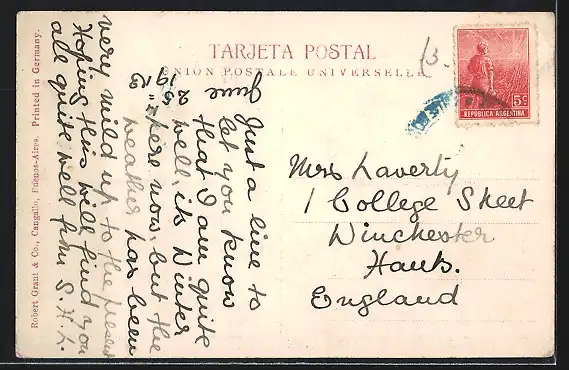 TARJETA POSTAL
UNION POSTALE UNIVERSELLE
13.
5c
REPUBLICA ARGENTINA
June
2
1913
Just a line to
let you know
that I am quite
well, its Winter
here now, but the
weather has been
very mild up to the present
Hoping this will find you
all quite well from S.H.L.
Mrs Laverty
1 College Street
Winchester
Hants.
England
Robert Grant & Co., Cangallo, Buenos-Aires. Printed in Germany.